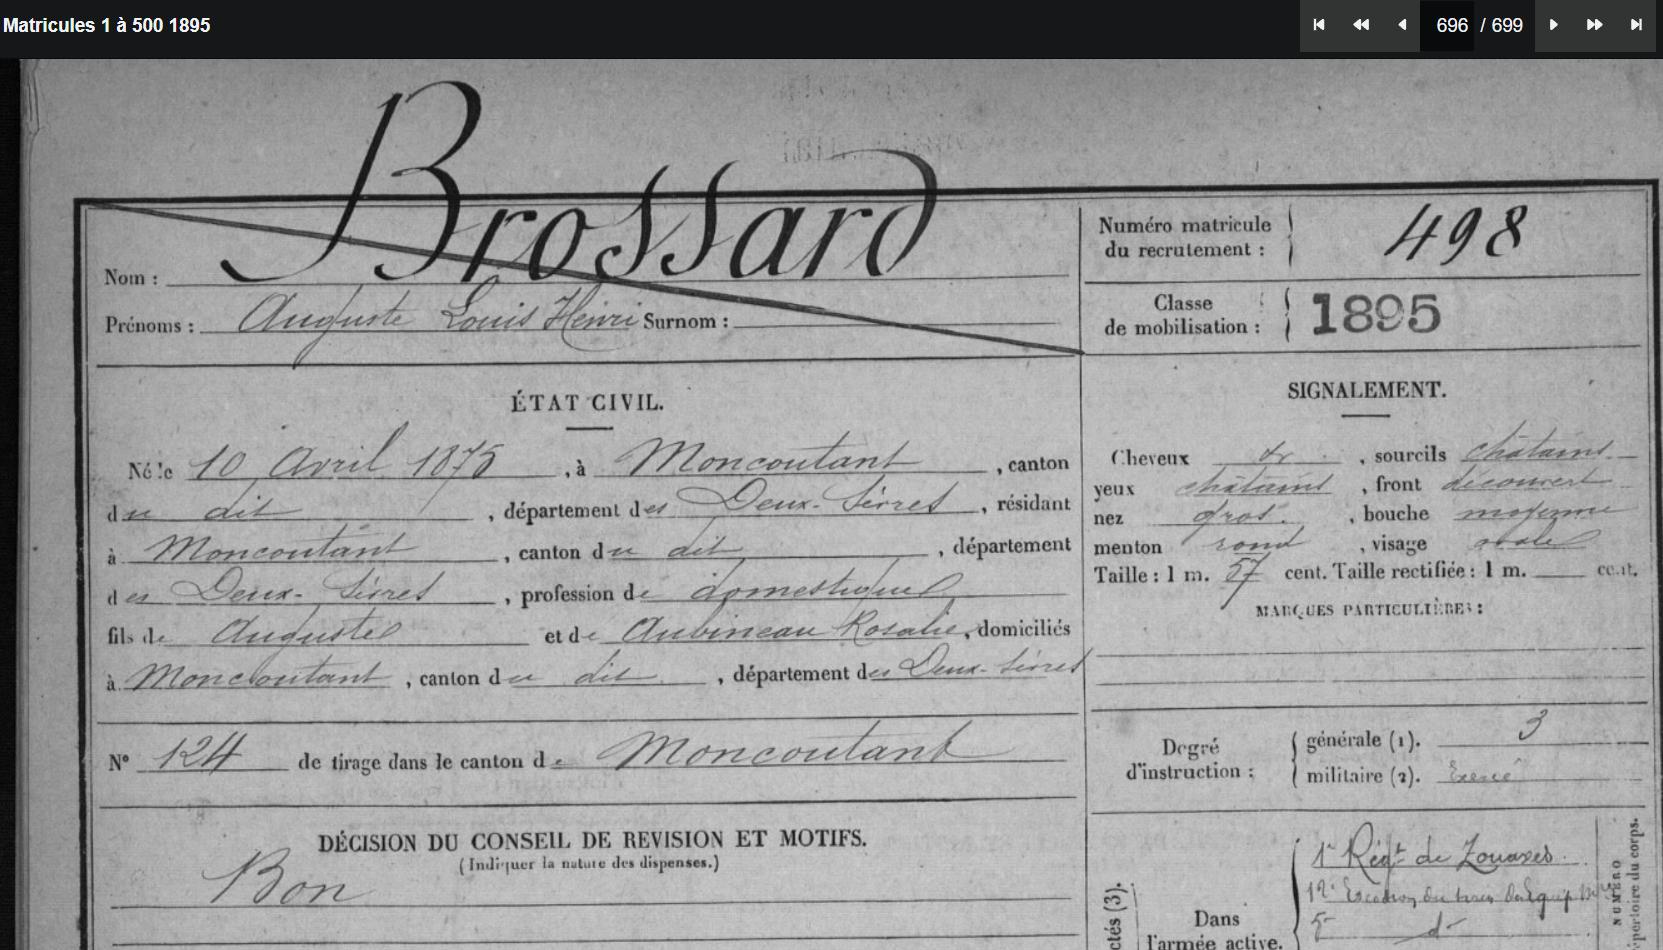 Matricules 1 à 500 1895
696 / 699
Brossard
Nom :
Prénoms : Auguste Louis Henri Surnom :
Numéro matricule du recrutement : 498
Classe de mobilisation : 1895
ÉTAT CIVIL.
Né le 10 Avril 1875, à Moncoutant, canton
du dit, département des Deux-Sèvres, résidant
à Moncoutant, canton du dit, département
des Deux-Sèvres, profession de domestique
fils de Auguste et de Aubineau Rosalie, domiciliés
à Moncoutant, canton du dit, département des Deux-Sèvres
N° 124 de tirage dans le canton de Moncoutant
DÉCISION DU CONSEIL DE REVISION ET MOTIFS.
(Indiquer la nature des dispenses.)
Bon
SIGNALEMENT.
Cheveux et, sourcils châtains
yeux châtains, front découvert
nez gros, bouche moyenne
menton rond, visage ovale
Taille : 1 m. 57 cent. Taille rectifiée : 1 m. cent.
MARQUES PARTICULIÈRES :
Degré d'instruction :
générale (1). 3
militaire (2). Exercé
ctés (3).
Dans
l'armée active.
1er Régt de Zouaves
12e Escadron du train des Equip. Mres
5e d°
NUMÉRO
épertoire du corps.